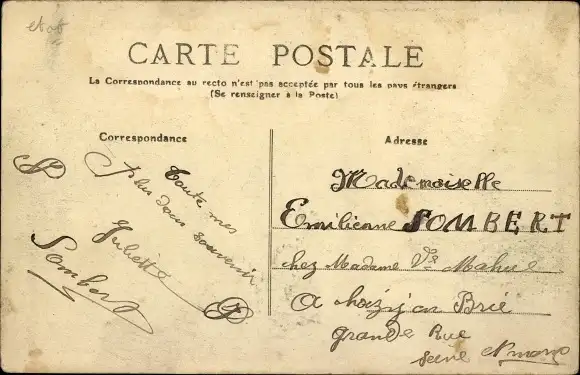 CARTE POSTALE
La Correspondance au recto n'est pas acceptée par tous les pays étrangers
(Se renseigner à la Poste)
Correspondance
Toute mes
plus doux souvenir
Juliette
Sombert
Adresse
Mademoiselle
Emilienne SOMBERT
chez Madame Ve Mahue
A Choizy en Brie
grande Rue
Seine et